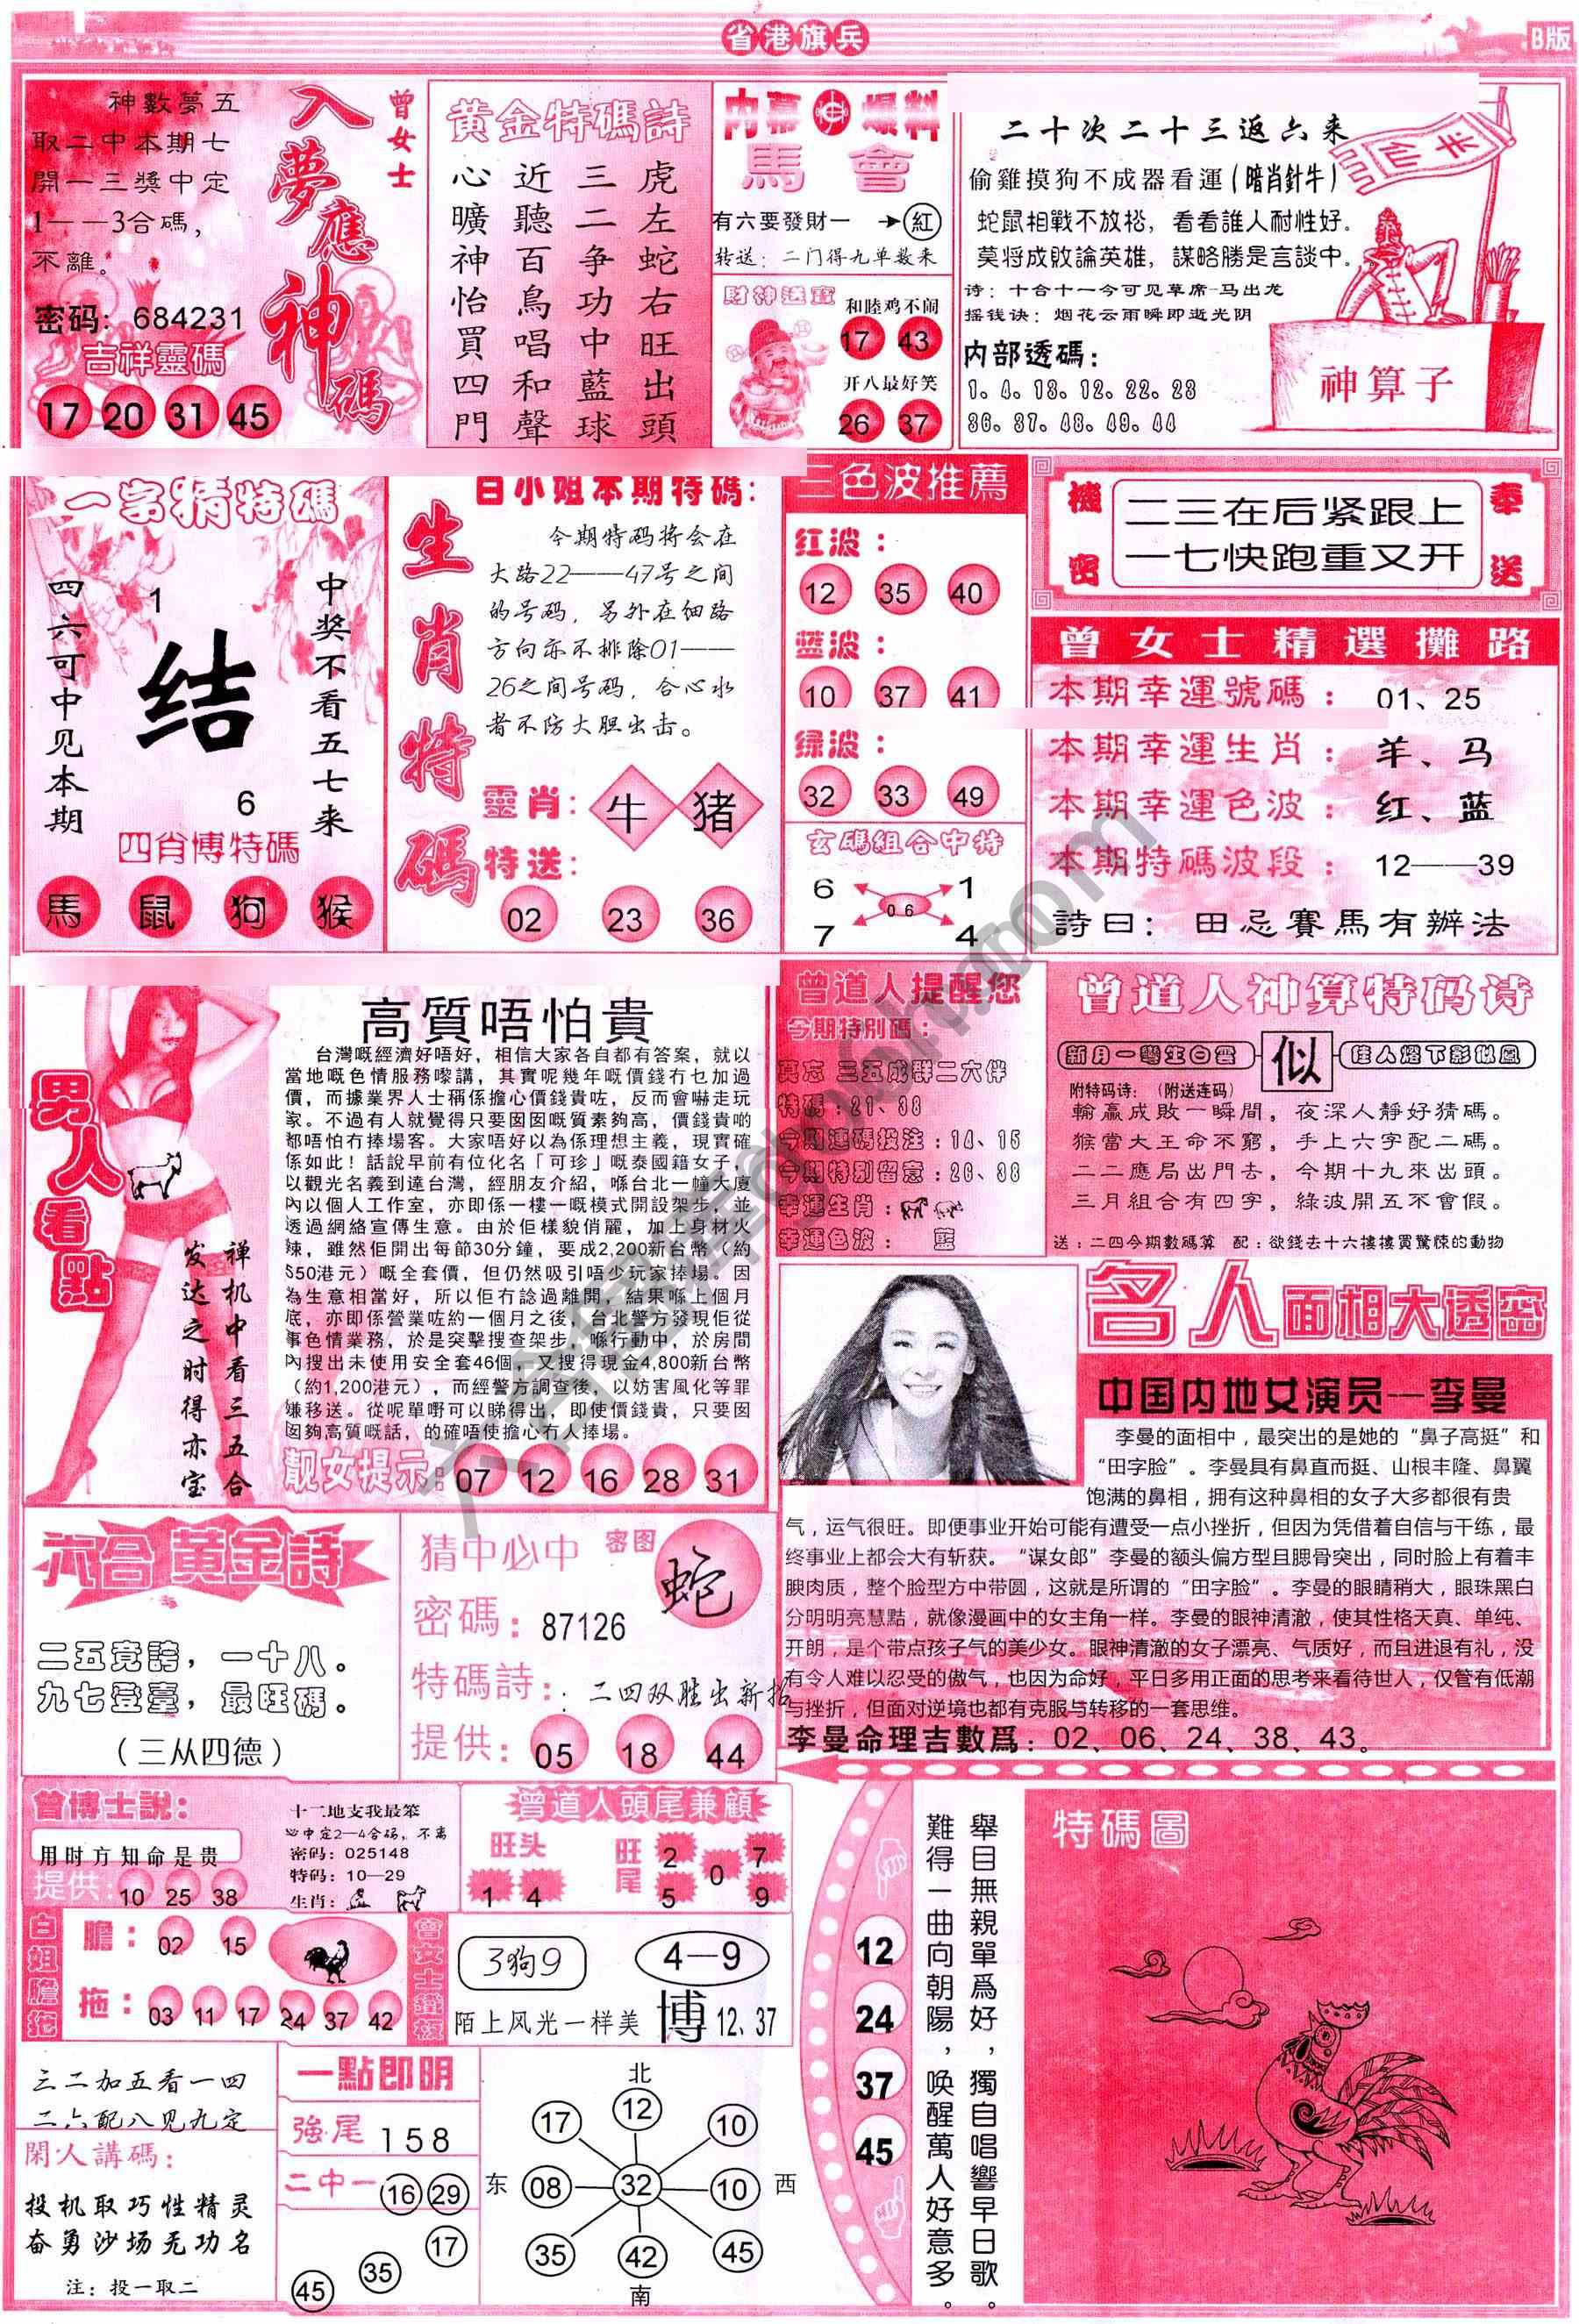 省港旗兵
B版
曾女士
入夢應神碼
神數夢五
取二中本期七
開一三獎中定
1——3合碼，
不離。
密码：684231
吉祥靈碼
17 20 31 45
黄金特碼詩
心曠神怡買四門
近聽百鳥唱和聲
三二争功中藍球
虎左蛇右旺出頭
内幕爆料
馬會
有六要發財一→紅
转送：二门得九单数来
財神送寶
和睦鸡不闹
17 43
开八最好笑
26 37
二十次二十三返六来
偷雞摸狗不成器看運(暗肖針牛)
蛇鼠相戰不放松，看看誰人耐性好。
莫将成敗論英雄，謀略勝是言談中。
诗：十合十一今可见草席-马出龙
摇钱诀：烟花云雨瞬即逝光阴
内部透碼：
1。4。13。12。22。23
36。37。48。49。44
半仙
神算子
一字猜特碼
四六可中见本期
1
结
6
中奖不看五七来
四肖博特碼
馬 鼠 狗 猴
生肖特碼
白小姐本期特碼：
今期特码将会在
大路22——47号之间
的号码，另外在细路
方向亦不排除01——
26之间号码，合心水
者不防大胆出击。
靈肖：牛 猪
特送：
02 23 36
三色波推薦
红波：
12 35 40
蓝波：
10 37 41
绿波：
32 33 49
玄碼組合中特
6 1
06
7 4
機密
二三在后紧跟上
一七快跑重又开
奉送
曾女士精選攤路
本期幸運號碼：01、25
本期幸運生肖：羊、马
本期幸運色波：红、蓝
本期特碼波段：12——39
詩曰：田忌賽馬有辦法
男人看點
禅机中看三五合
发达之时得亦宝
高質唔怕貴
台灣嘅經濟好唔好，相信大家各自都有答案，就以
當地嘅色情服務嚟講，其實呢幾年嘅價錢冇乜加過
價，而據業界人士稱係擔心價錢貴咗，反而會嚇走玩
家。不過有人就覺得只要囡囡嘅質素夠高，價錢貴啲
都唔怕冇捧場客。大家唔好以為係理想主義，現實確
係如此！話說早前有位化名「可珍」嘅泰國籍女子，
以觀光名義到達台灣，經朋友介紹，喺台北一幢大廈
內以個人工作室，亦即係一樓一嘅模式開設架步，並
透過網絡宣傳生意。由於佢樣貌俏麗，加上身材火
辣，雖然佢開出每節30分鐘，要成2,200新台幣（約
550港元）嘅全套價，但仍然吸引唔少玩家捧場。因
為生意相當好，所以佢冇諗過離開，結果喺上個月
底，亦即係營業咗約一個月之後，台北警方發現佢從
事色情業務，於是突擊搜查架步。喺行動中，於房間
內搜出未使用安全套46個，又搜得現金4,800新台幣
（約1,200港元），而經警方調查後，以妨害風化等罪
嫌移送。從呢單嘢可以睇得出，即使價錢貴，只要囡
囡夠高質嘅話，的確唔使擔心冇人捧場。
靓女提示：07 12 16 28 31
曾道人提醒您
今期特别碼：
莫忘 三五成群二六伴
特碼：21、38
今期連碼投注：14、15
今期特别留意：26、38
幸運生肖：
幸運色波： 藍
曾道人神算特码诗
新月一彎生白雲
似
佳人燈下影似風
附特码诗：（附送连码）
輸贏成敗一瞬間，夜深人靜好猜碼。
猴當大王命不窮，手上六字配二碼。
二二應局出門去，今期十九來出頭。
三月組合有四字，綠波開五不會假。
送：二四今期數碼算 配：欲錢去十六摟摟買驚悚的動物
名人面相大透密
中国内地女演员—李曼
李曼的面相中，最突出的是她的“鼻子高挺”和
“田字脸”。李曼具有鼻直而挺、山根丰隆、鼻翼
饱满的鼻相，拥有这种鼻相的女子大多都很有贵
气，运气很旺。即便事业开始可能有遭受一点小挫折，但因为凭借着自信与干练，最
终事业上都会大有斩获。“谋女郎”李曼的额头偏方型且腮骨突出，同时脸上有着丰
腴肉质，整个脸型方中带圆，这就是所谓的“田字脸”。李曼的眼睛稍大，眼珠黑白
分明明亮慧黠，就像漫画中的女主角一样。李曼的眼神清澈，使其性格天真、单纯、
开朗，是个带点孩子气的美少女。眼神清澈的女子漂亮、气质好，而且进退有礼，没
有令人难以忍受的傲气，也因为命好，平日多用正面的思考来看待世人，仅管有低潮
与挫折，但面对逆境也都有克服与转移的一套思维。
李曼命理吉數爲：02、06、24、38、43。
六合黄金詩
二五竞誇，一十八。
九七登臺，最旺碼。
（三从四德）
猜中必中
密图
蛇
密碼：87126
特碼詩：二四双胜出新招
提供：05 18 44
曾博士説：
用时方知命是贵
提供：10 25 38
十二地支我最笨
必中定2—4合码，不离
密码：025148
特码：10—29
生肖：
曾道人頭尾兼顧
旺头
1 4
旺尾
2 7 0 5 9
白姐膽拖
膽：02 15
拖：03 11 17 24 37 42
曾女士鐵板
3狗9
4—9
陌上风光一样美 博 12、37
三二加五看一四
二六配八见九定
閑人講碼：
投机取巧性精灵
奋勇沙场无功名
注：投一取二
一點即明
強尾 158
二中一 16 29
17
35
45
北
17 12 10
东 08 32 10 西
35 42 45
南
12
24
37
45
舉目無親單爲好，獨自唱響早日歌。
難得一曲向朝陽，唤醒萬人好意多。
特碼圖